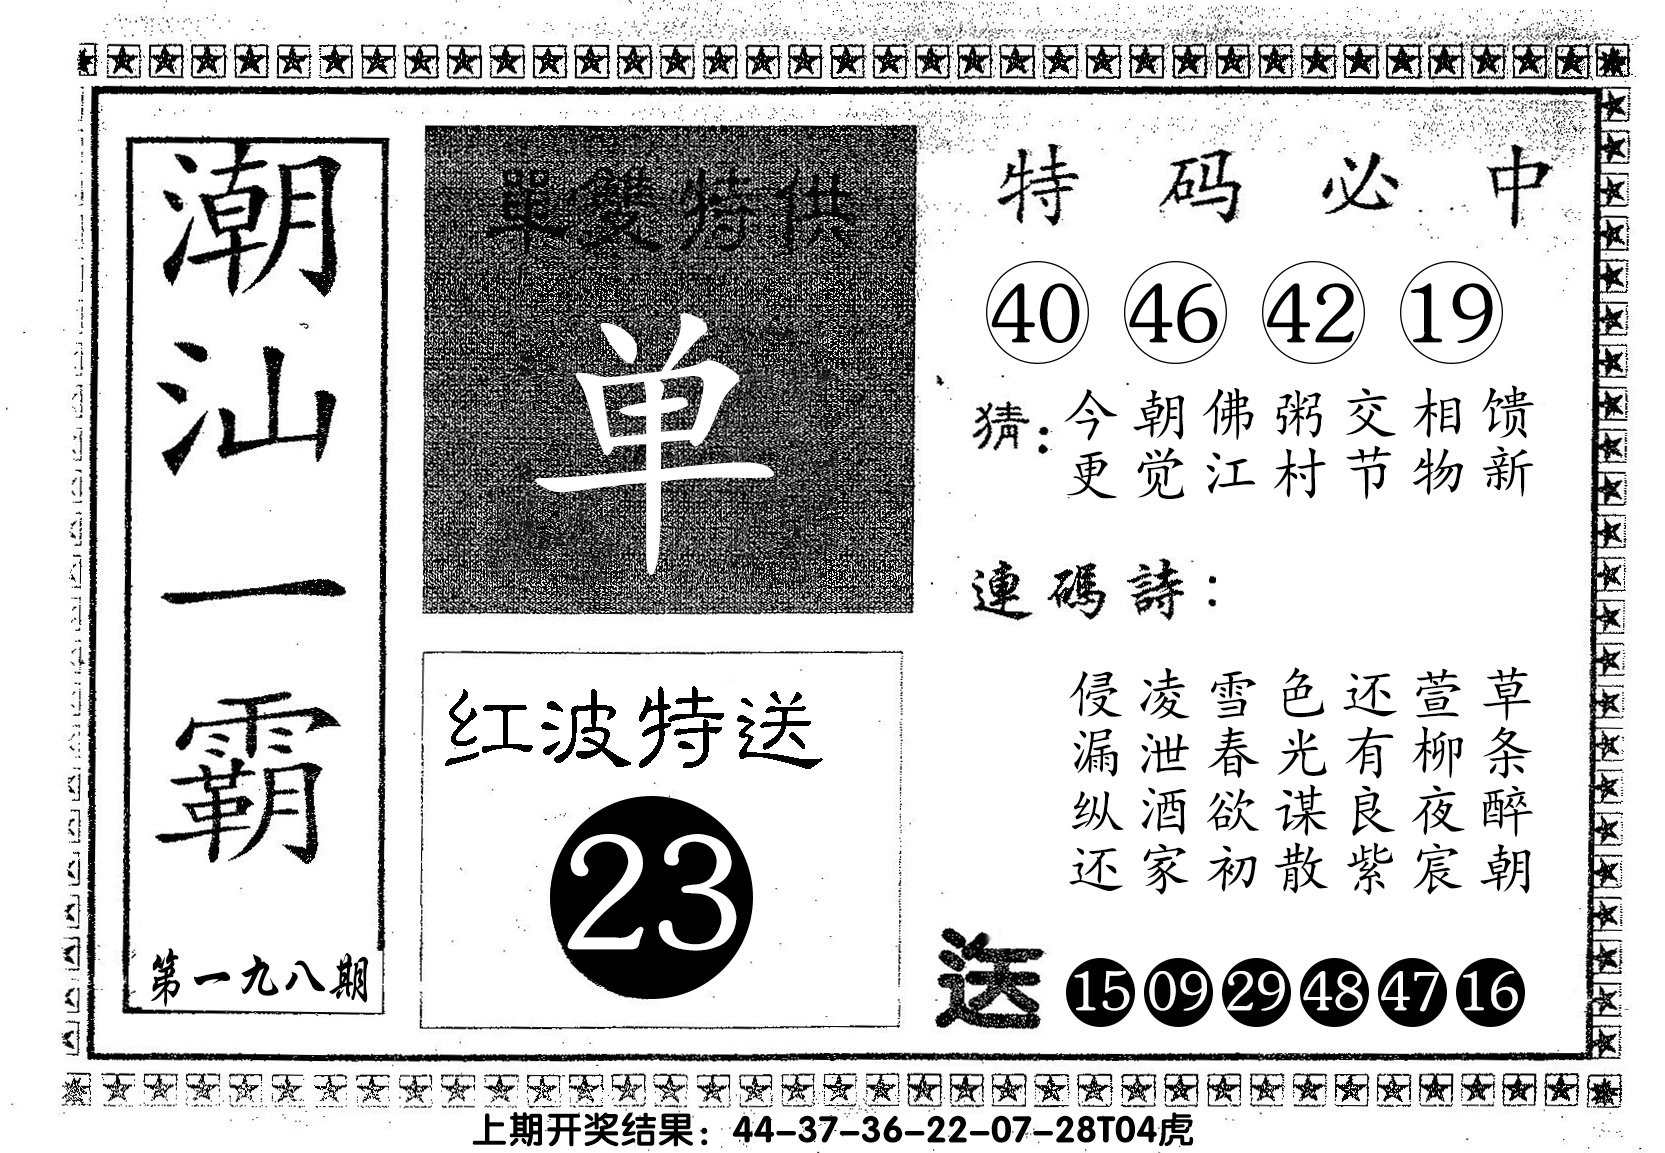 潮汕一霸
第一九八期
單雙特供
单
红波特送
23
特码必中
40 46 42 19
猜：今朝佛粥交相馈
更觉江村节物新
連碼詩：
侵凌雪色还萱草
漏泄春光有柳条
纵酒欲谋良夜醉
还家初散紫宸朝
送 15 09 29 48 47 16
上期开奖结果：44-37-36-22-07-28T04虎